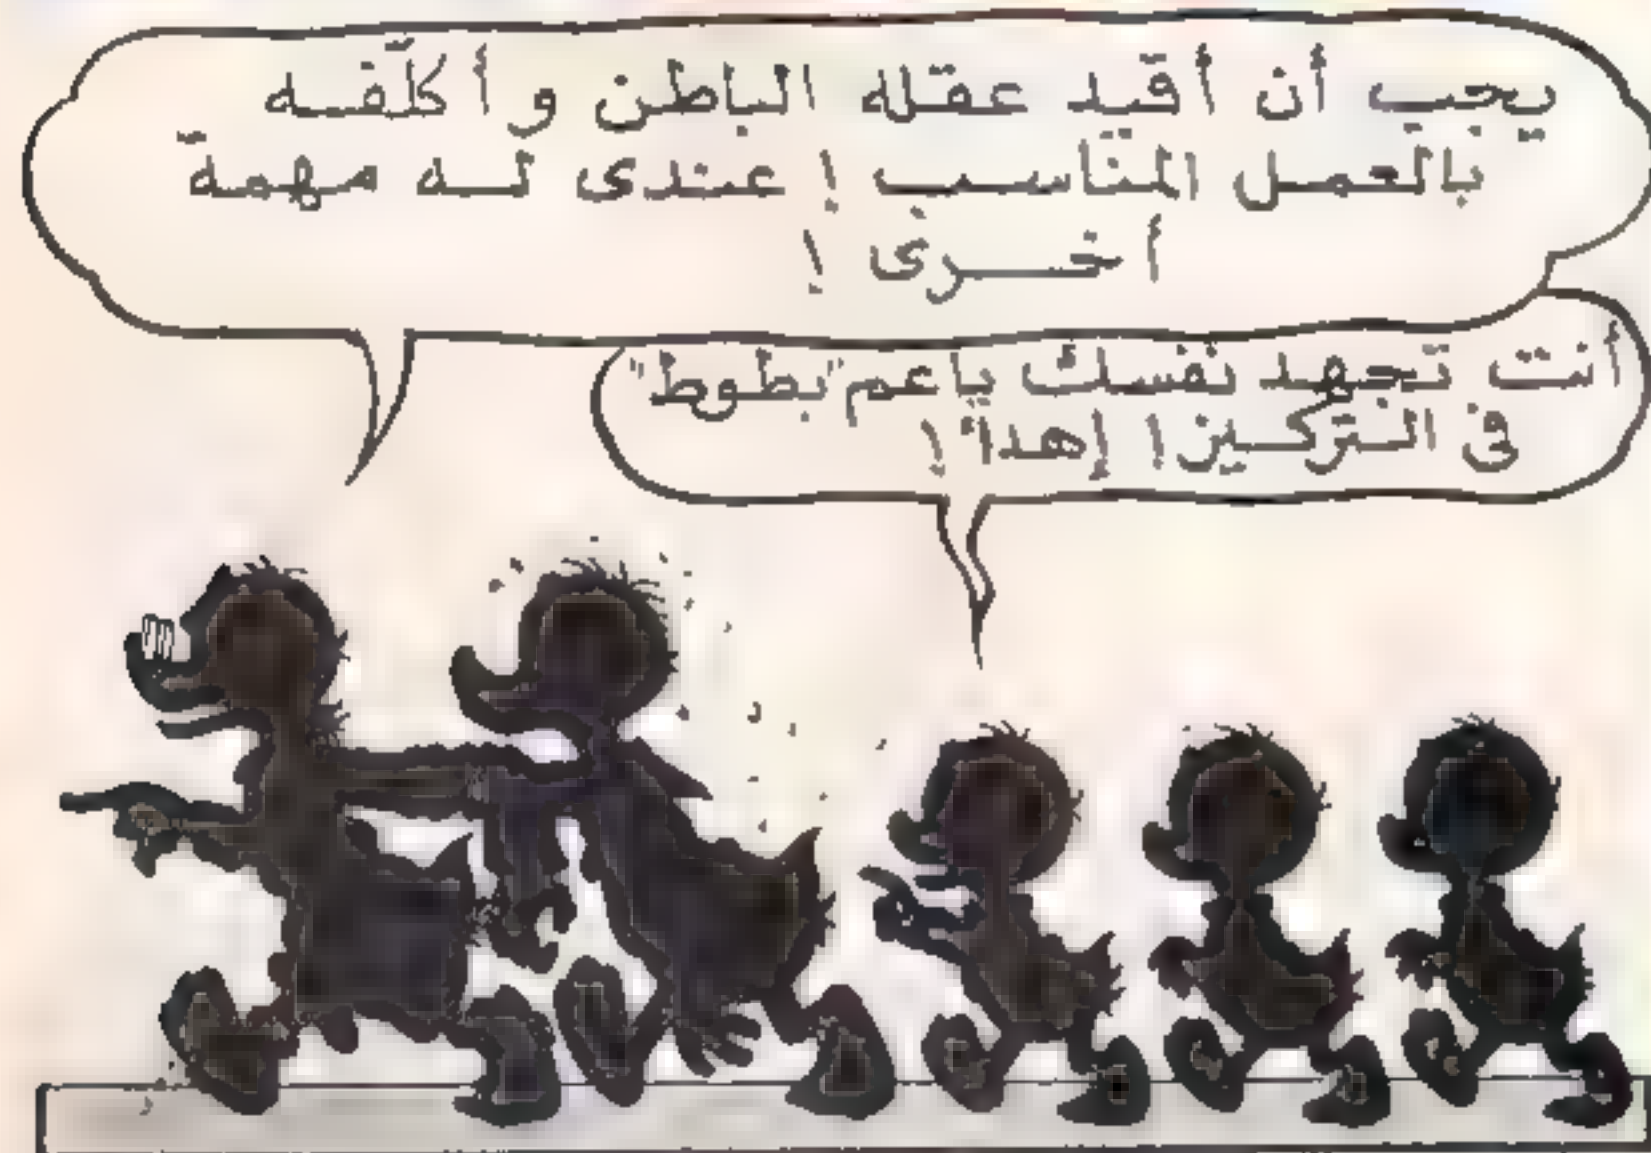 يجب أن أقيد عقله الباطن و أكلّفه
بالعمل المناسب ! عندى له مهمة
أخرى !
أنت تجهد نفسك ياعم "بطوط"
فى التركيز ! إهدأ !